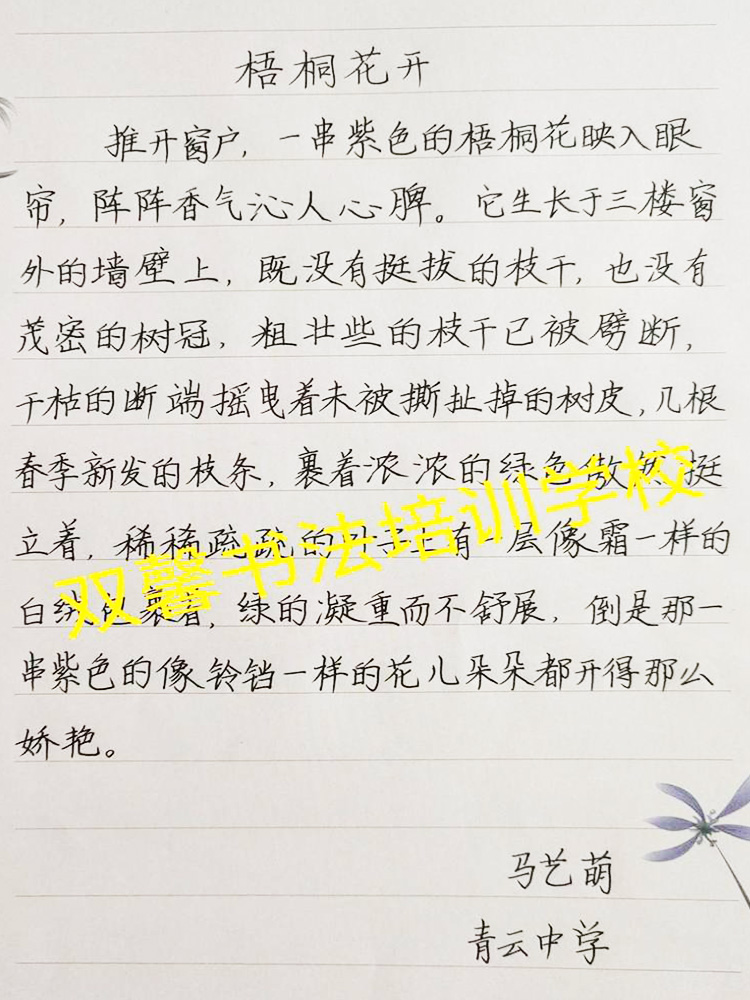 梧桐花开
推开窗户，一串紫色的梧桐花映入眼
帘，阵阵香气沁人心脾。它生长于三楼窗
外的墙壁上，既没有挺拔的枝干，也没有
茂密的树冠，粗壮些的枝干已被劈断，
干枯的断端摇曳着未被撕扯掉的树皮，几根
春季新发的枝条，裹着浓浓的绿色傲然挺
立着，稀稀疏疏的叶子上有一层像霜一样的
白绒包裹着，绿的凝重而不舒展，倒是那一
串紫色的像铃铛一样的花儿朵朵都开得那么
娇艳。
双馨书法培训学校
马艺萌
青云中学